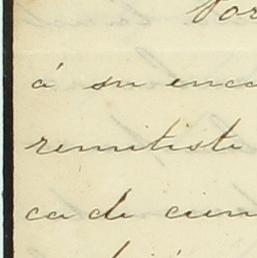 Por
á su enca
remitiste
ca de cien